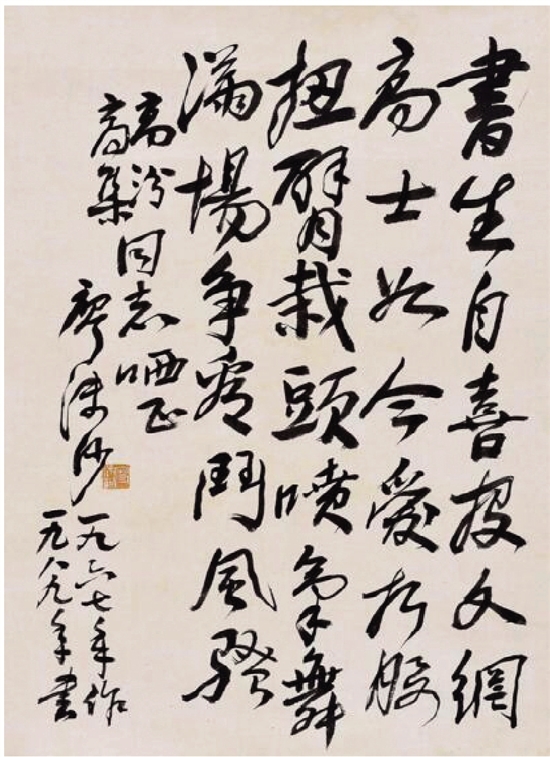 書生自喜投文網
高士如今愛折腰
扭臂栽頭噴氣舞
滿場争看鬥風騷
高汾
高集
同志哂正
廖沫沙
一九六七年作
一九八九年書